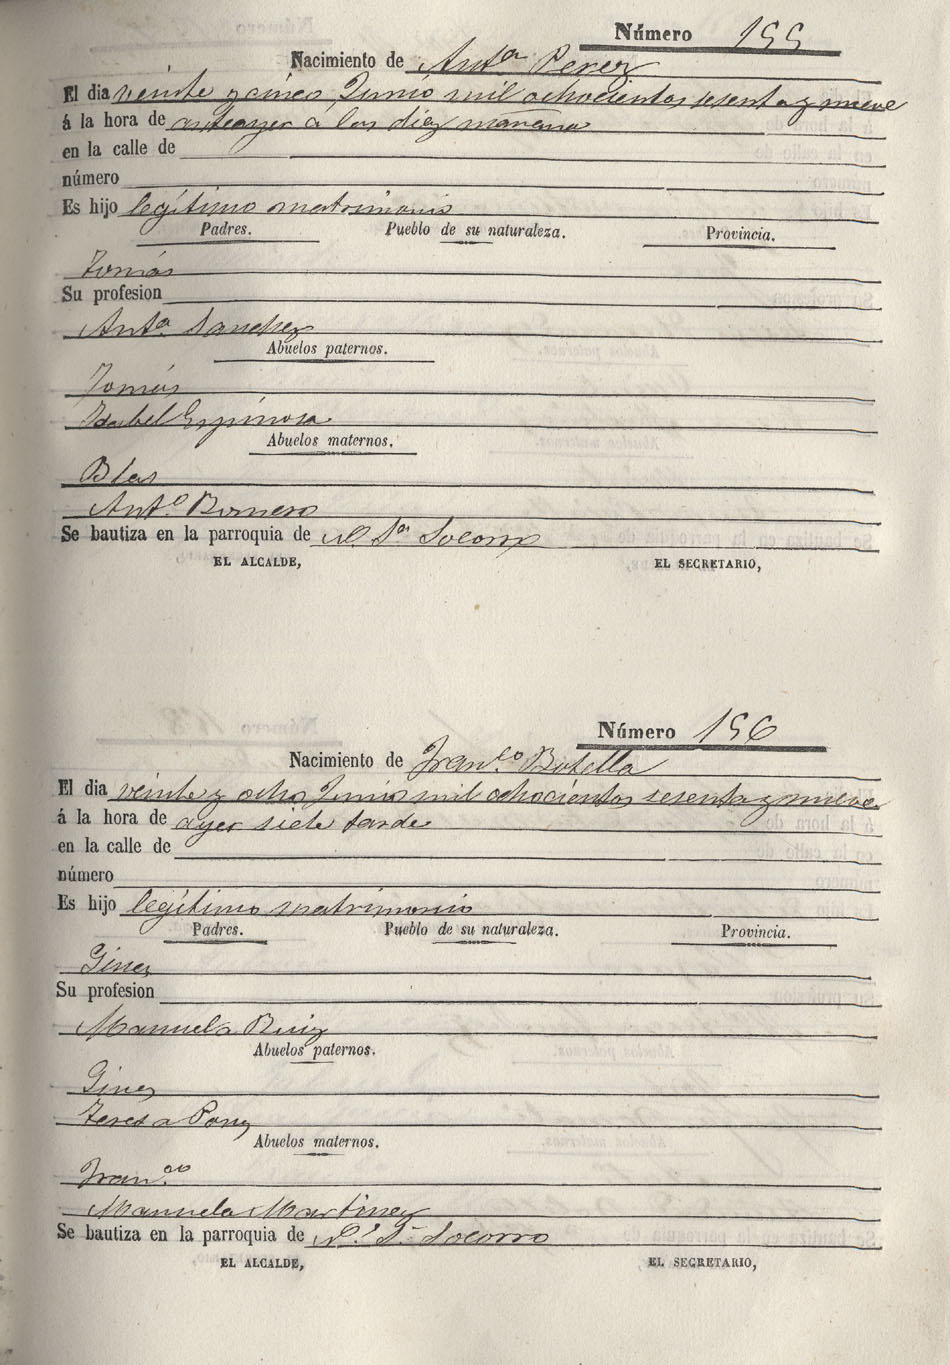 Número 155
Nacimiento de Ant.ª Perez
El dia veinte y cinco Junio mil ochocientos sesenta y nueve
á la hora de anteayer a las diez manana
en la calle de
número
Es hijo legitimo matrimonio
Padres. Pueblo de su naturaleza. Provincia.
Tomás
Su profesion
Ant.ª Sanchez
Abuelos paternos.
Tomás
Isabel Espinosa
Abuelos maternos.
Blas
Ant.ª Romero
Se bautiza en la parroquia de N. S.ra Socorro
EL ALCALDE, EL SECRETARIO,
Número 156
Nacimiento de Fran.co Botella
El dia veinte y ocho Junio mil ochocientos sesenta y nueve
á la hora de ayer siete tarde
en la calle de
número
Es hijo legitimo matrimonio
Padres. Pueblo de su naturaleza. Provincia.
Gines
Su profesion
Manuela Ruiz
Abuelos paternos.
Gines
Teresa Pons
Abuelos maternos.
Fran.co
Manuela Martinez
Se bautiza en la parroquia de N.ª S.ª Socorro
EL ALCALDE, EL SECRETARIO,